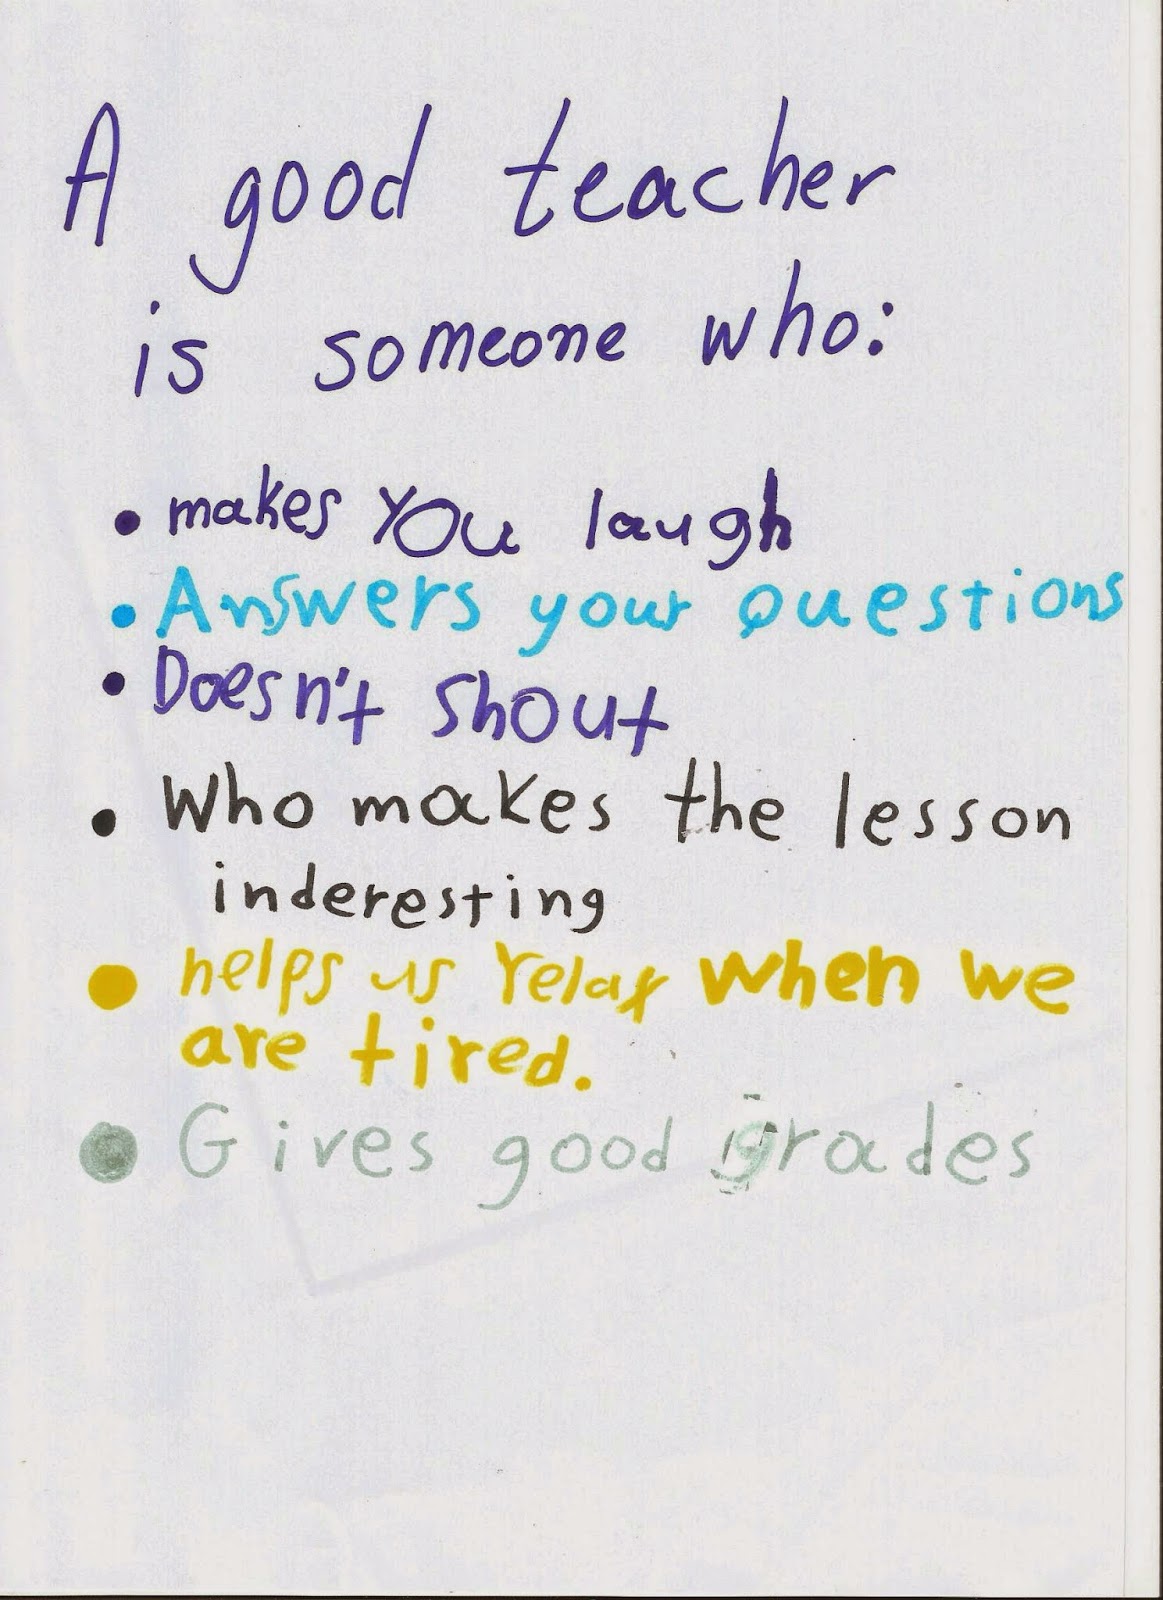 A good teacher
is someone who:
• makes you laugh
• Answers your questions
• Doesn't shout
• Who makes the lesson
inderesting
• helps us relax when we
are tired.
• Gives good grades